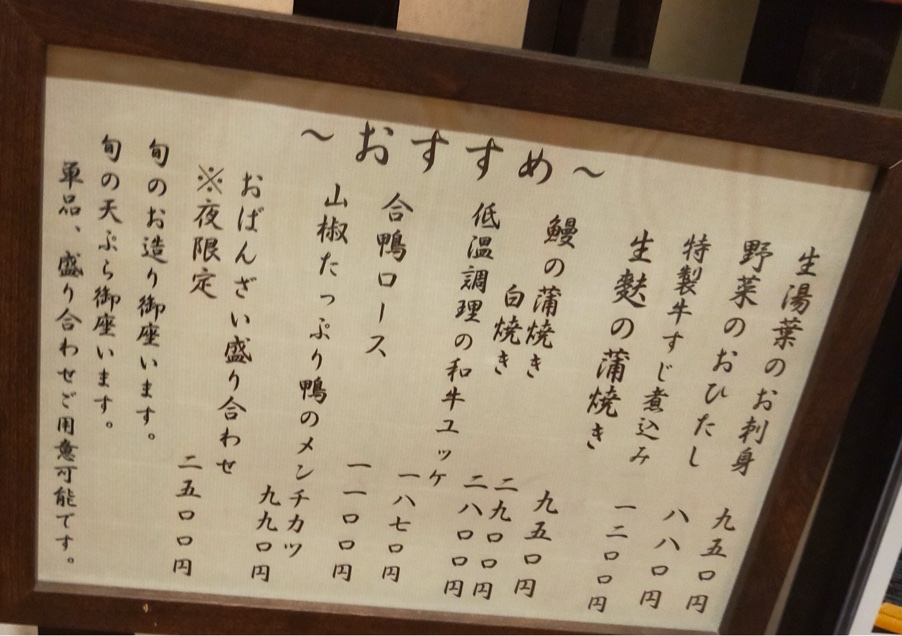 ～おすすめ～
生湯葉のお刺身 九五〇円
野菜のおひたし 八八〇円
特製牛すじ煮込み 一二〇〇円
生麩の蒲焼き 九五〇円
鰻の蒲焼き 二九〇〇円
白焼き 二八〇〇円
低温調理の和牛ユッケ 一八七〇円
合鴨ロース 一一〇〇円
山椒たっぷり鴨のメンチカツ 九九〇円
おばんざい盛り合わせ 二五〇〇円
※夜限定
旬のお造り御座います。
旬の天ぷら御座います。
単品、盛り合わせご用意可能です。